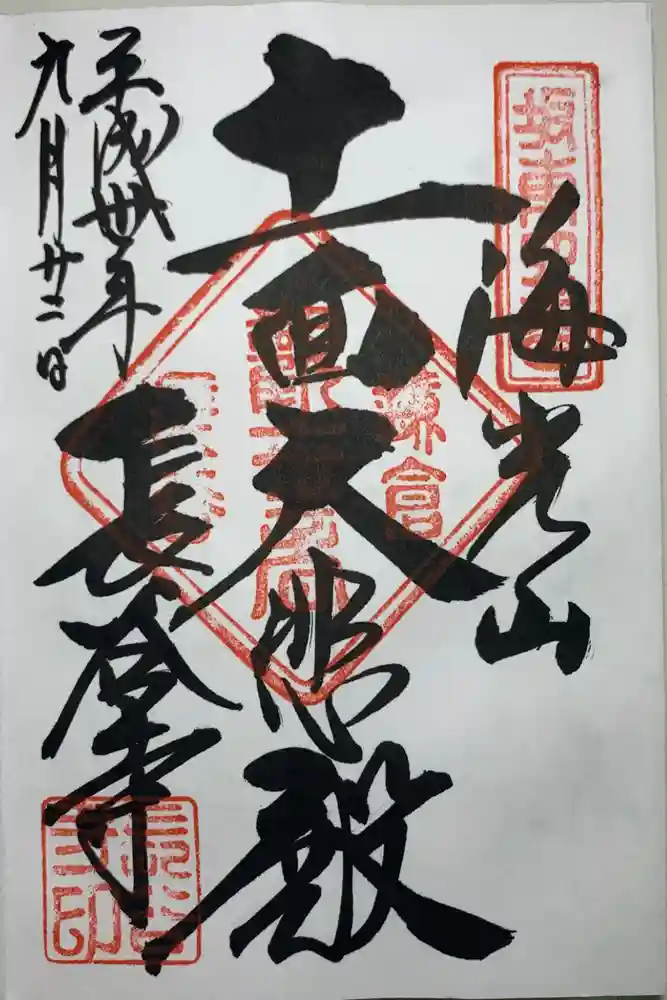 坂東四番
海光山
鎌倉
十一面大悲殿
長谷寺
長谷寺印
平成卅年
九月廿二日